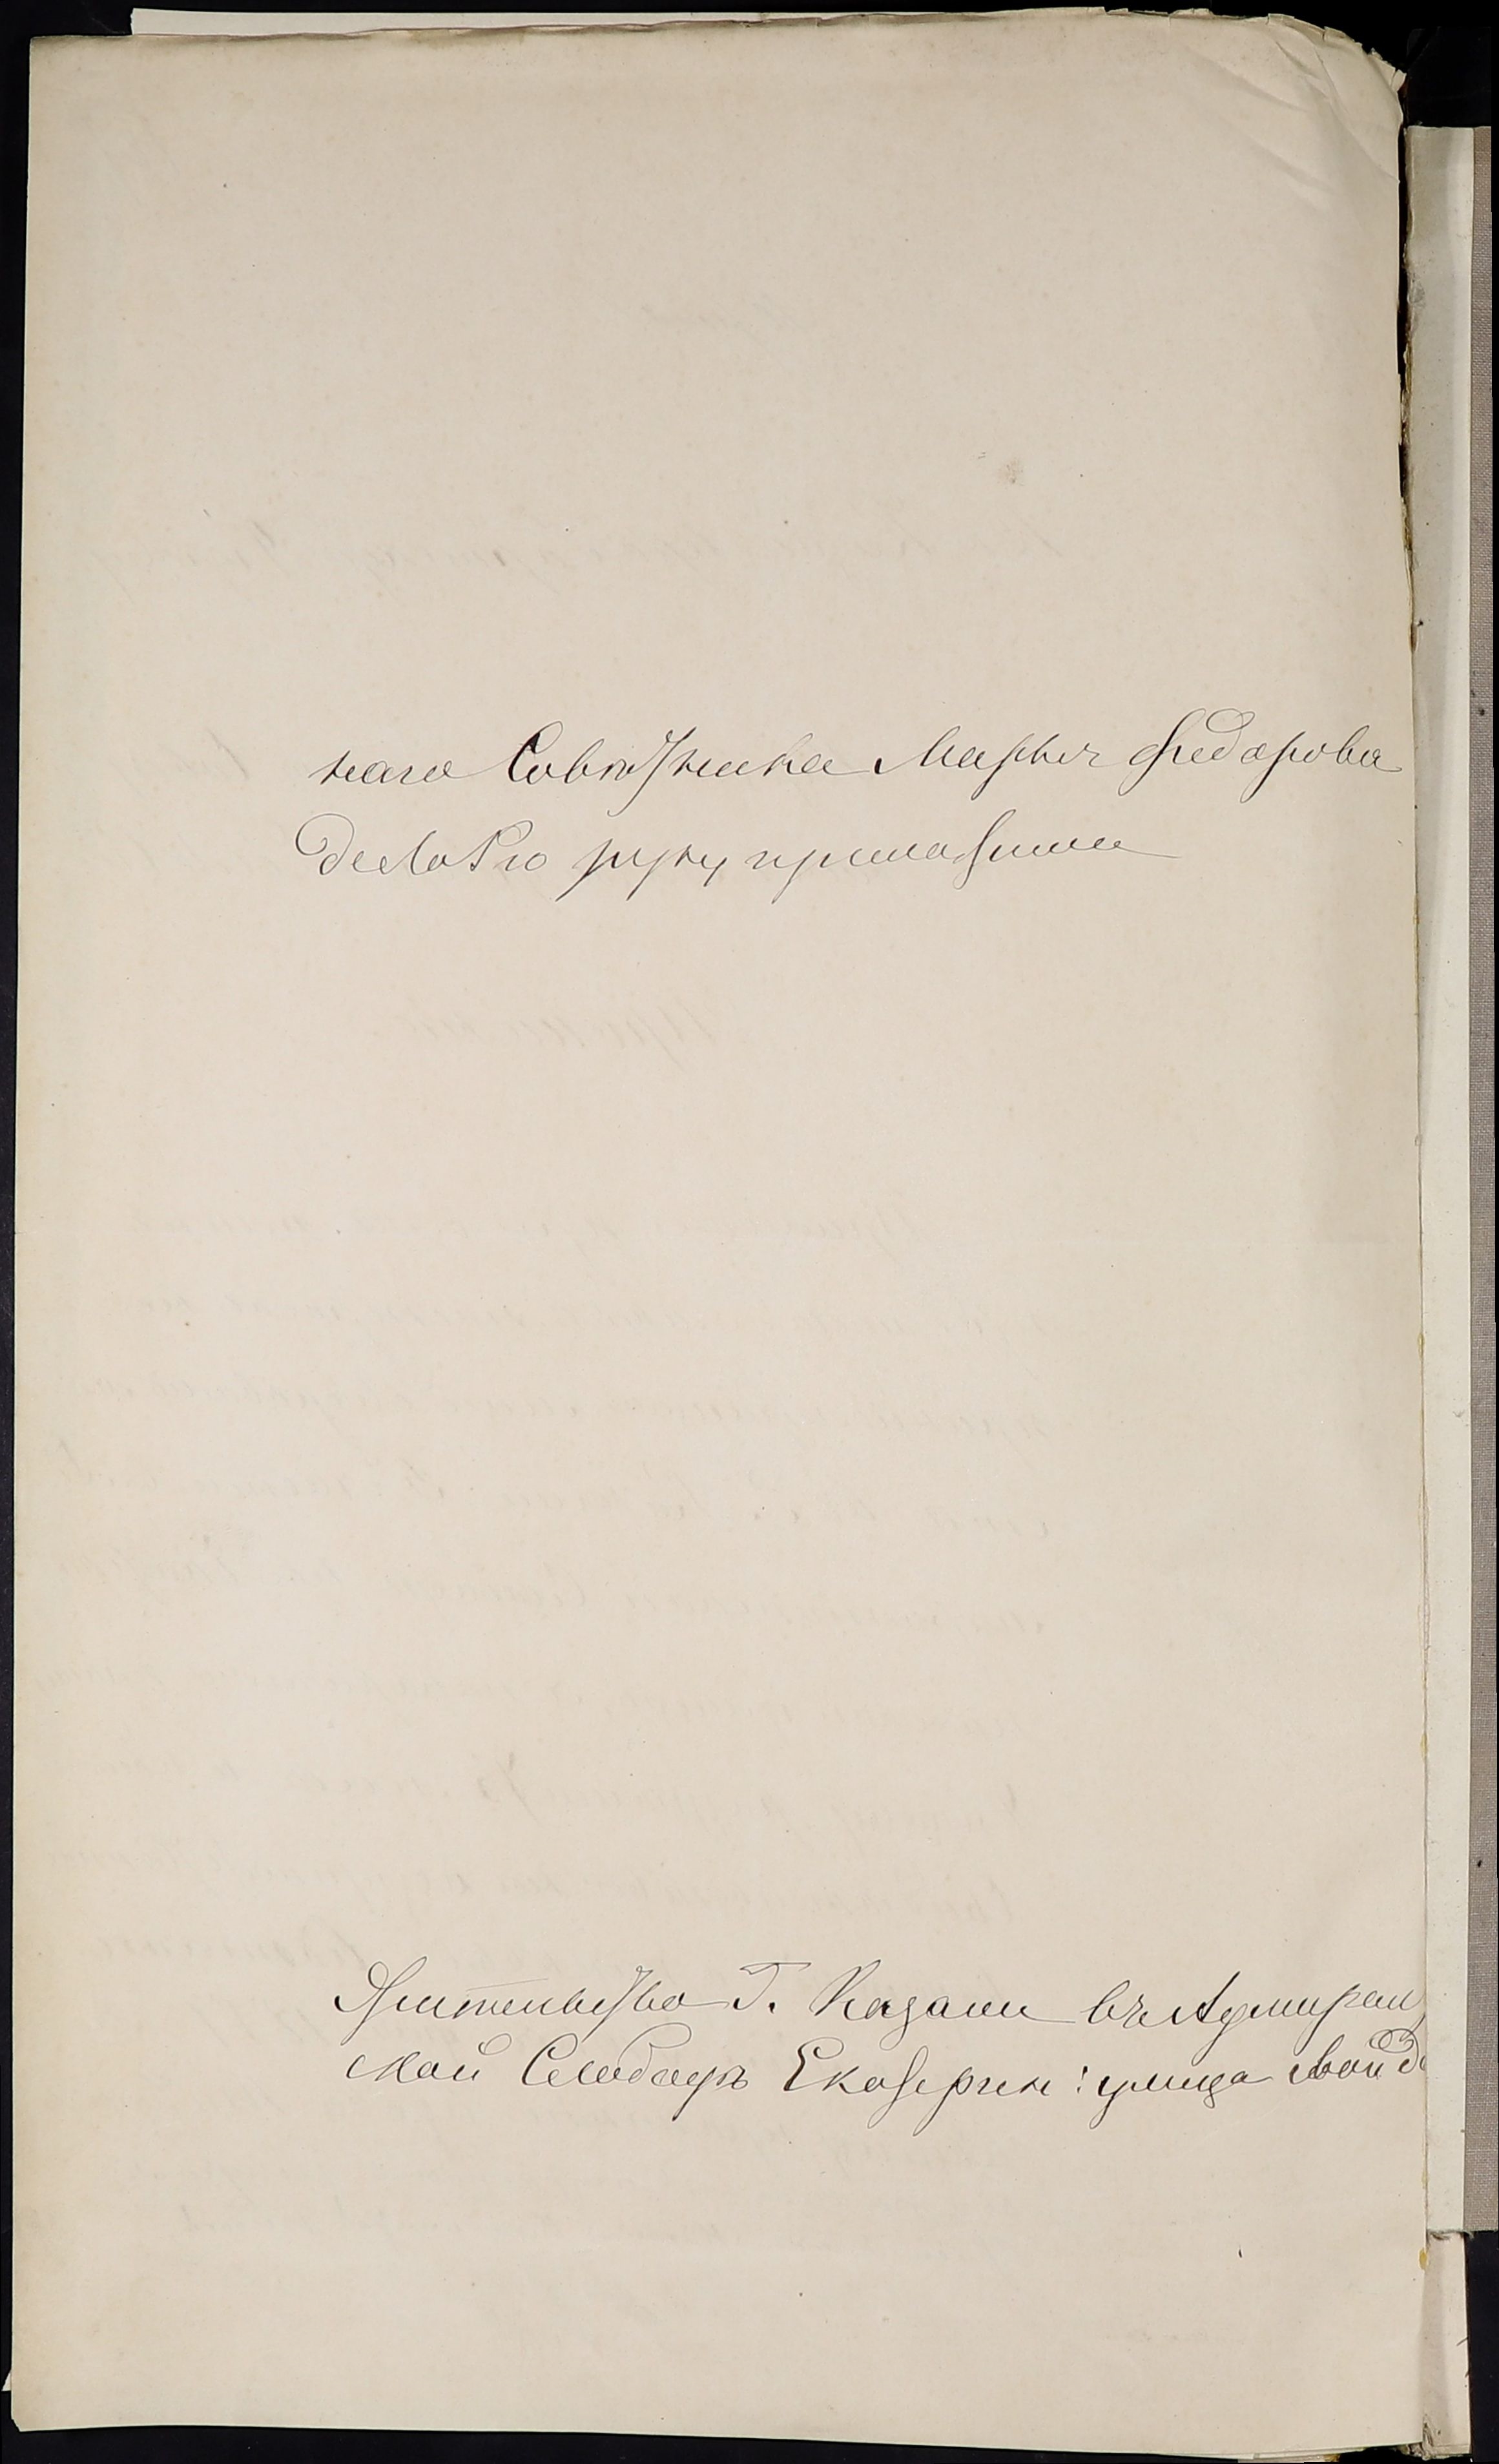 наго Совѣтника Марья Федорова
Делорю руку приложила
Жительство Г. Казани въ Адмирал
ской Слободѣ Екатерин: улица свой д